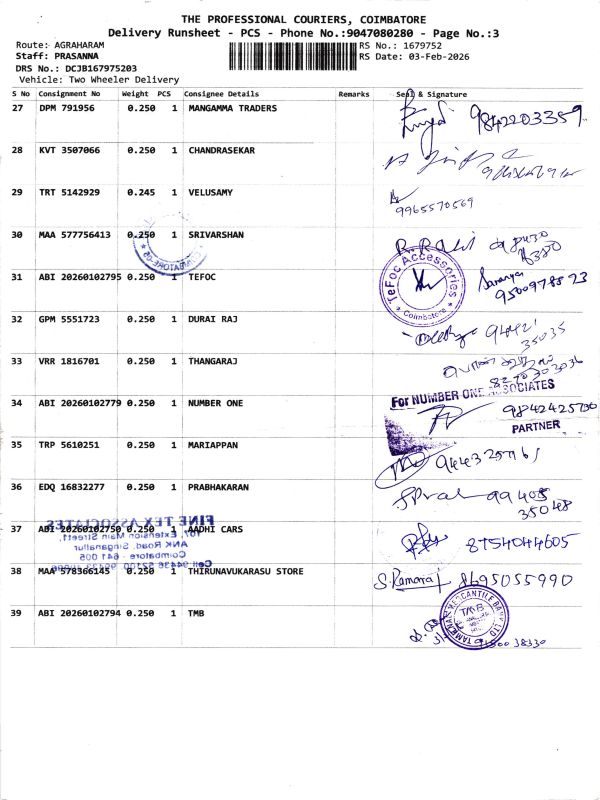 THE PROFESSIONAL COURIERS, COIMBATORE
Delivery Runsheet - PCS - Phone No.:9047080280 - Page No.:3
Route: AGRAHARAM RS No.: 1679752
Staff: PRASANNA RS Date: 03-Feb-2026
DRS No.: DCJB167975203
Vehicle: Two Wheeler Delivery
S No Consignment No Weight PCS Consignee Details Remarks Seal & Signature
27 DPM 791956 0.250 1 MANGAMMA TRADERS 9842203359
28 KVT 3507066 0.250 1 CHANDRASEKAR
29 TRT 5142929 0.245 1 VELUSAMY 9965570569
30 MAA 577756413 0.250 1 SRIVARSHAN
COIMBATORE
31 ABI 20260102795 0.250 1 TEFOC TeFoc Accessories Coimbatore Saranya
9500978523
32 GPM 5551723 0.250 1 DURAI RAJ 94421
35035
33 VRR 1816701 0.250 1 THANGARAJ
34 ABI 20260102779 0.250 1 NUMBER ONE For NUMBER ONE ASSOCIATES
9842425700
PARTNER
35 TRP 5610251 0.250 1 MARIAPPAN
36 EDQ 16832277 0.250 1 PRABHAKARAN 99408
35048
FINE TEX ASSOCIATES
37 ABI 20260102750 0.250 1 AADHI CARS 8754044605
107, Extension Main Street,
ANK Road, Singanallur
Coimbatore - 641 005
38 MAA 578366145 0.250 1 THIRUNAVUKARASU STORE S. Kamaraj 8695055990
39 ABI 20260102794 0.250 1 TMB TAMILNAD MERCANTILE BANK LTD TMB
38330